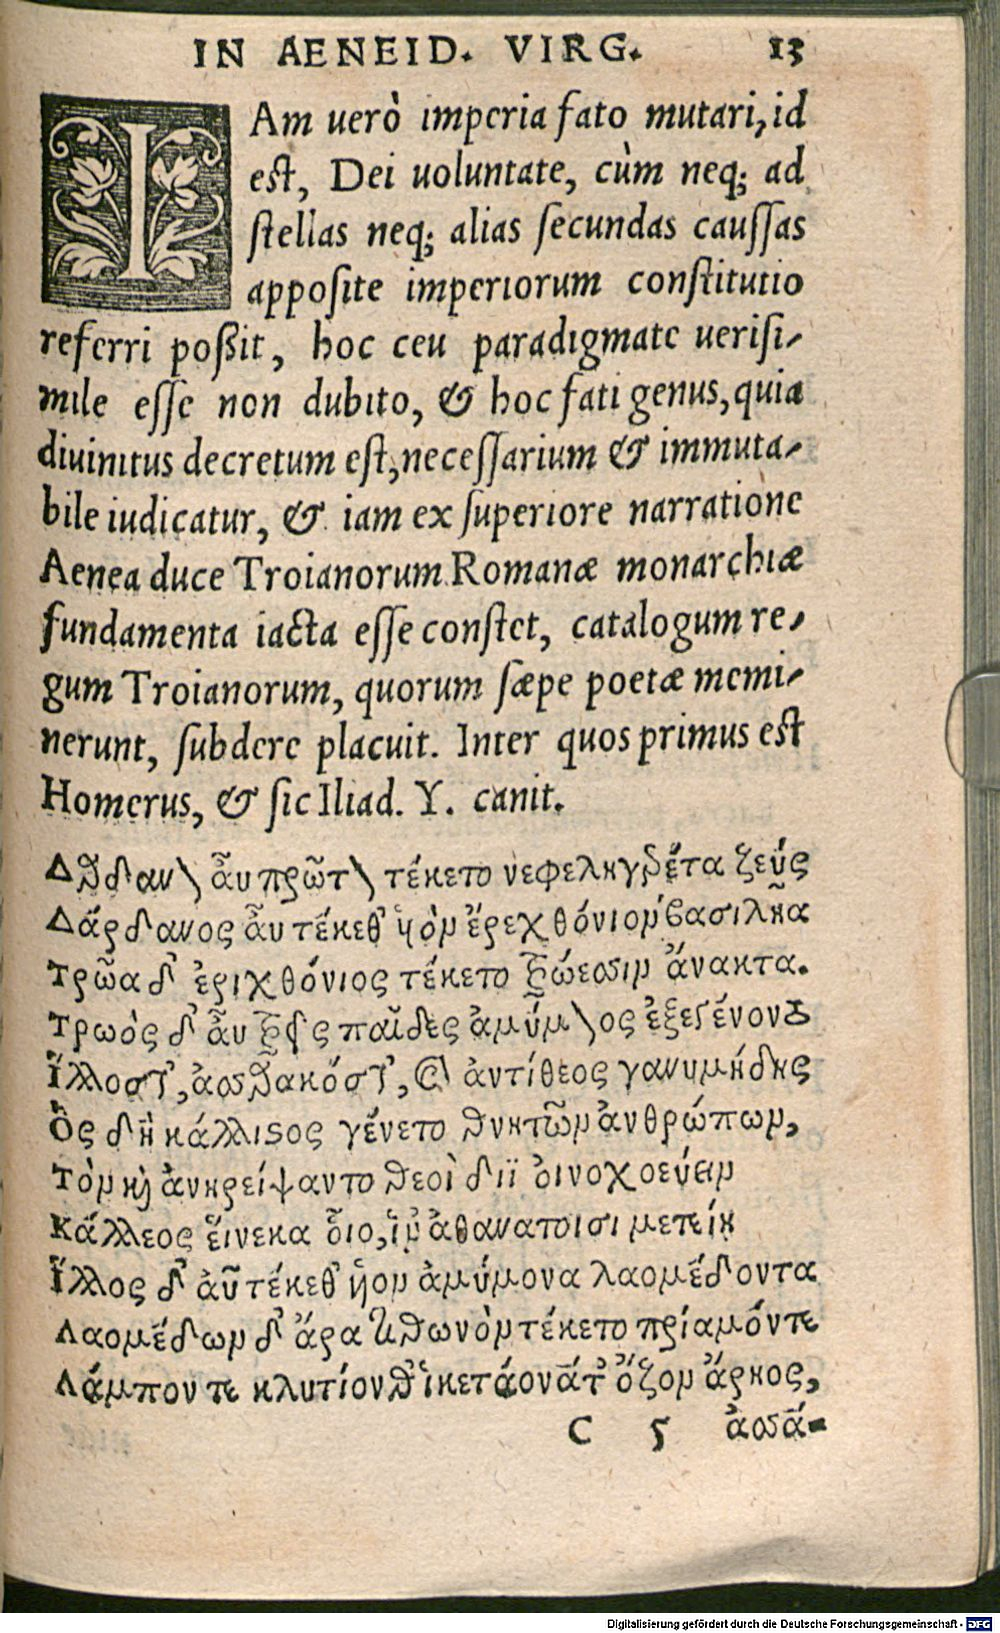 IN AENEID. VIRG. 13
IAm uerò imperia fato mutari, id
est, Dei uoluntate, cùm neq; ad
stellas neq; alias secundas caussas
apposite imperiorum constitutio
referri poßit, hoc ceu paradigmate uerisi-
mile esse non dubito, & hoc fati genus, quia
diuinitus decretum est, necessarium & immuta-
bile iudicatur, & iam ex superiore narratione
Aenea duce Troianorum Romanæ monarchiæ
fundamenta iacta esse constet, catalogum re-
gum Troianorum, quorum sæpe poetæ memi-
nerunt, subdere placuit. Inter quos primus est
Homerus, & sic Iliad. Υ. canit.
Δάρδανον ἆυ πρῶτον τέκετο νεφεληγερέτα ζεύς
Δάρδανος ἆυ τέκεθ' ἡὸν ἔρεχθόνιον βασιλῆα
Τρῶα δ' ἐριχθόνιος τέκετο τρώεσσιν ἄνακτα.
Τρωὸς δ' ἆυ τρεῖς παῖδες ἀμύμονος ἐξεγένοντο
Ἶλλοστ', ἀσσάρακόστ', καὶ ἀντίθεος γανυμήδης
Ὃς δὴ κάλλιστος γένετο θνητῶν ἀνθρώπων,
Τὸν καὶ ἀνηρείψαντο θεοὶ διῒ ὀινοχοεύειν
Κάλλεος εἵνεκα ὅιο, ἵν' ἀθανατοισι μετείη
Ἶλλος δ' ἀῦ τέκεθ' ἡον ἀμύμονα λαομέδοντα
Λαομέδων δ' ἄρα τιθωνὸν τέκετο πρίαμόντε
Λάμπον τε κλυτίονθ' ἱκετάονά τ' ὄζον ἄρηος,
C 5 ἀσσά-
Digitalisierung gefördert durch die Deutsche Forschungsgemeinschaft - DFG